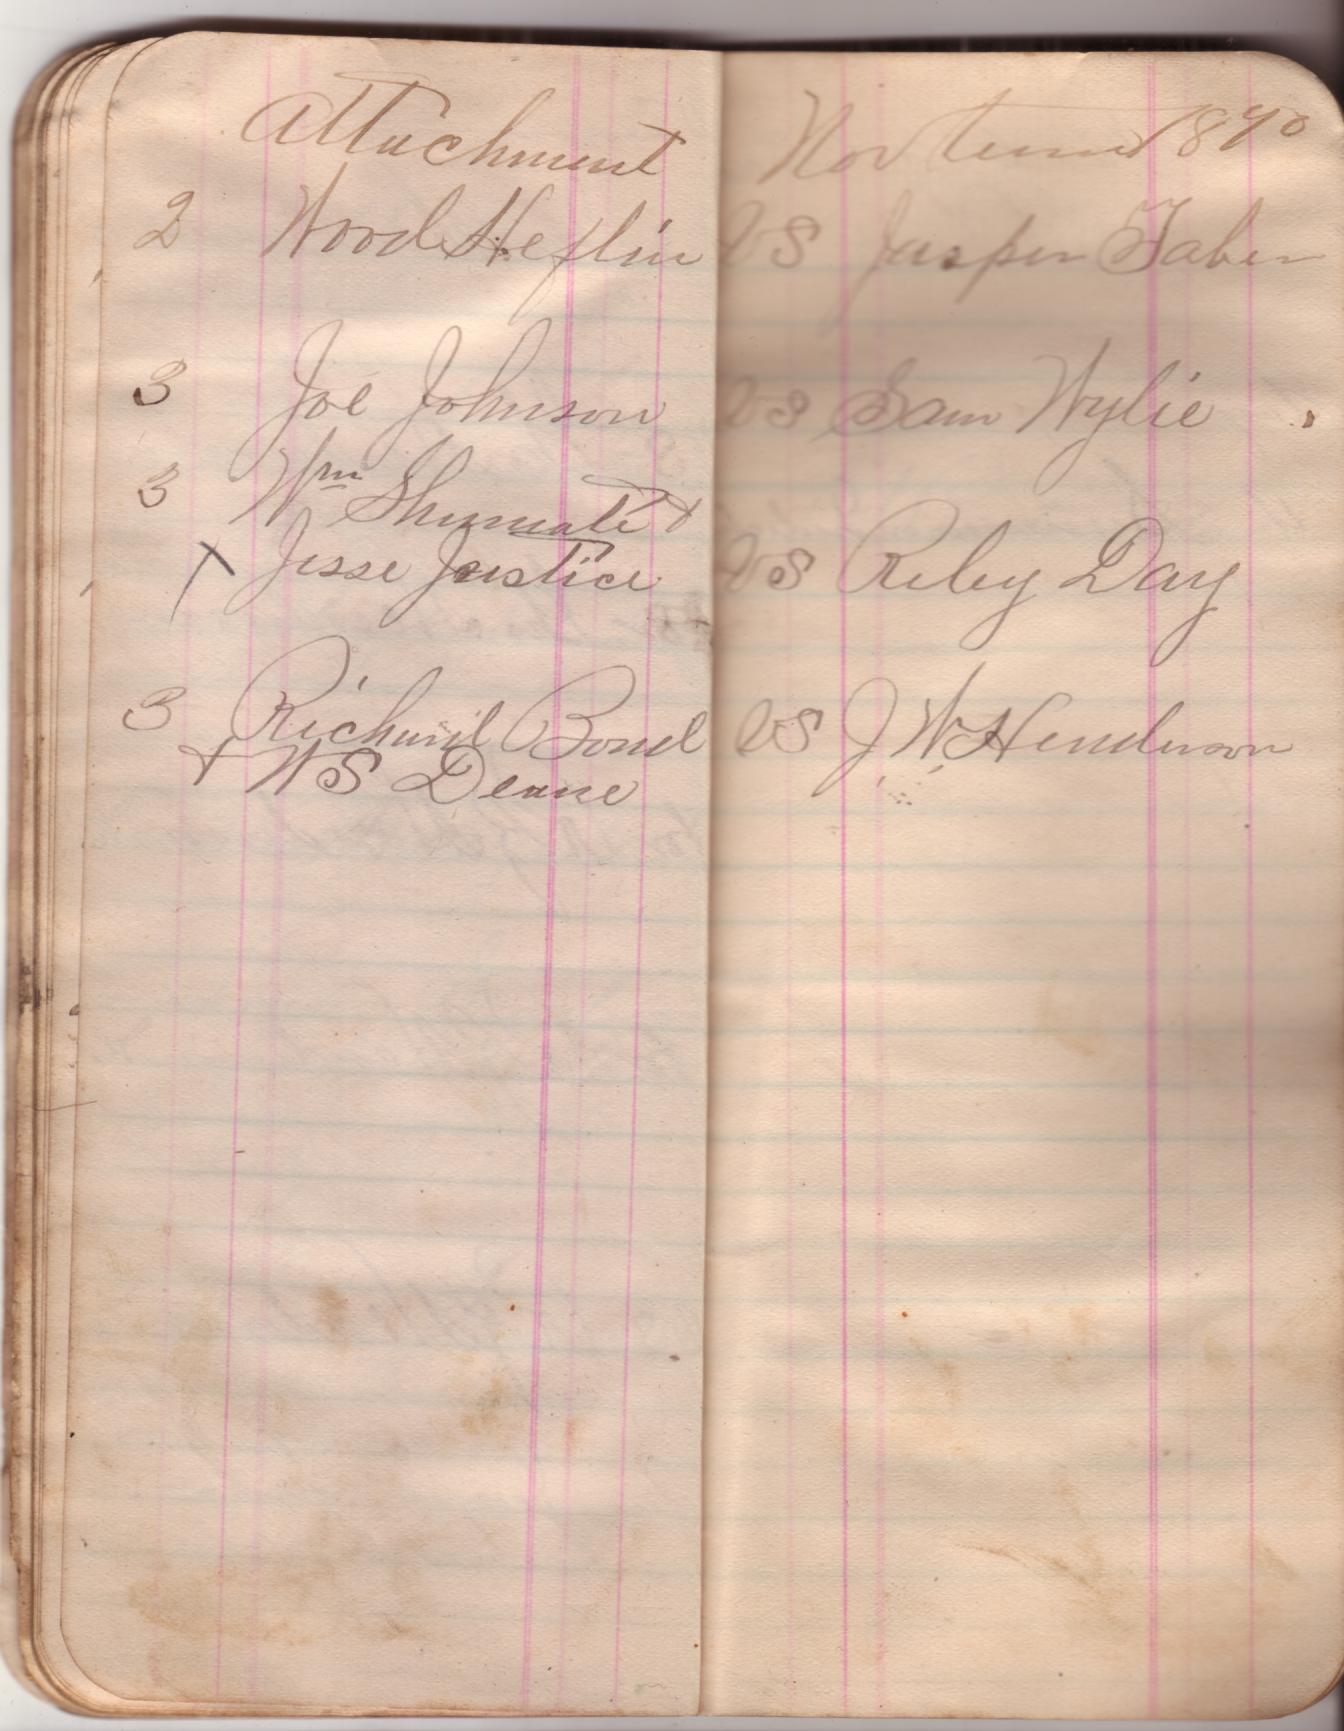 Attachment Nov term 1890
2 Wood Heflin VS Jasper Faber
3 Joe Johnson VS Sam Wylie
3 Wm Shumate &
X Jesse Justice VS Riley Day
3 Richard Bond VS J W Henderson
& W S Deane